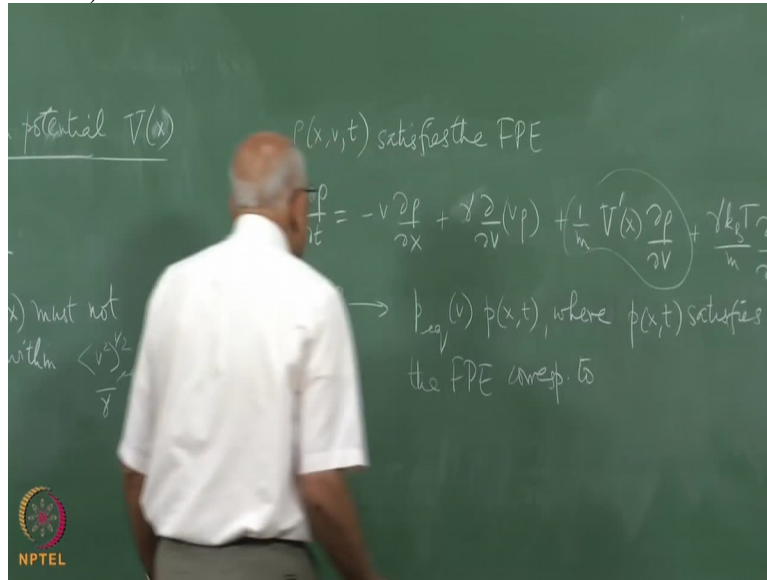 potential V(x)
ρ(x,v,t) satisfies the FPE
∂ρ/∂t = -v ∂ρ/∂x + γ ∂/∂v (vρ) + (1/m V'(x) ∂ρ/∂v + γk_BT/m ∂
x) must not
within <v²>^1/2 / γ
→ p_eq(v) p(x,t), where p(x,t) satisfies
the FPE corresp. to
NPTEL